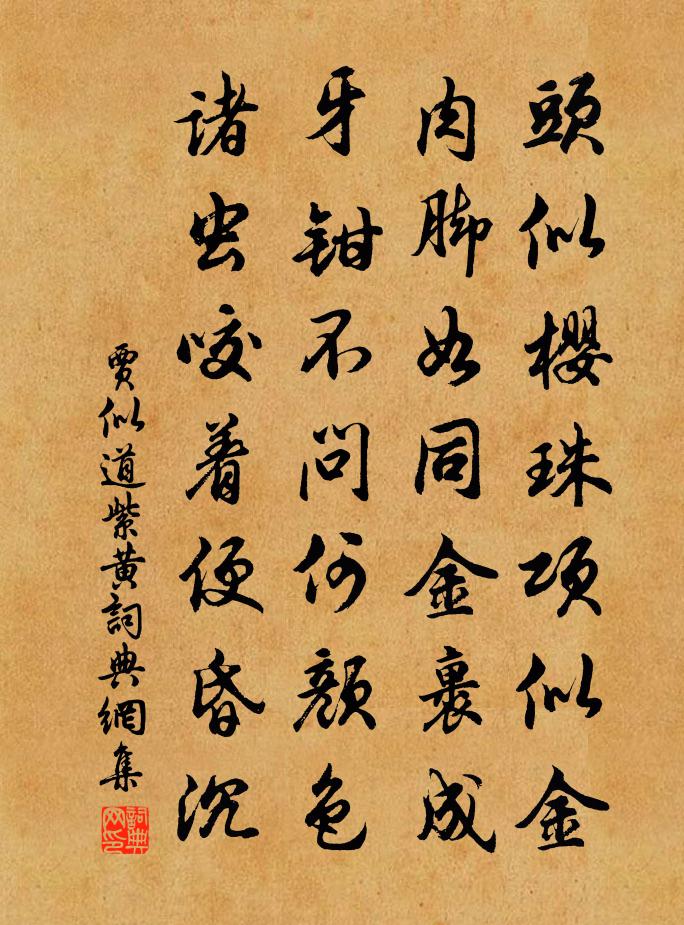 頭似櫻珠項似金
肉脚如同金裹成
牙鉗不問何顏色
诸虫咬着便昏沉
賈似道紫黄詞典網集
詞典网印